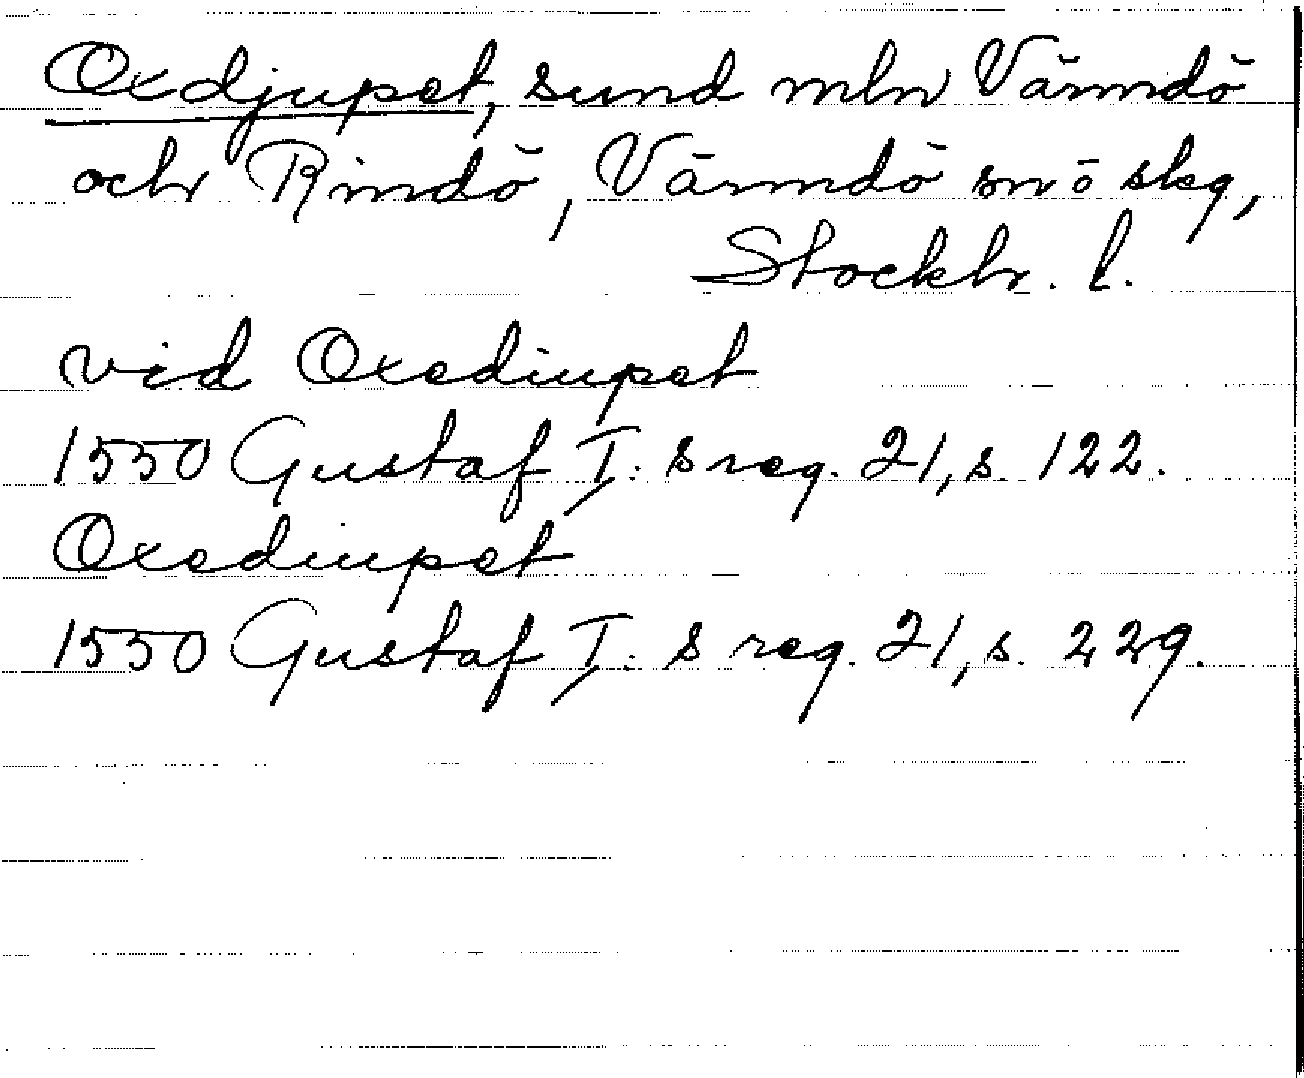 Oxdjupet, sund mln Värmdö
och Rindö, Värmdö sn o skg,
Stockh. l.
vid Oxediupet
1550 Gustaf I:s reg. 21, s. 122.
Oxediupet
1550 Gustaf I:s reg. 21, s. 229.